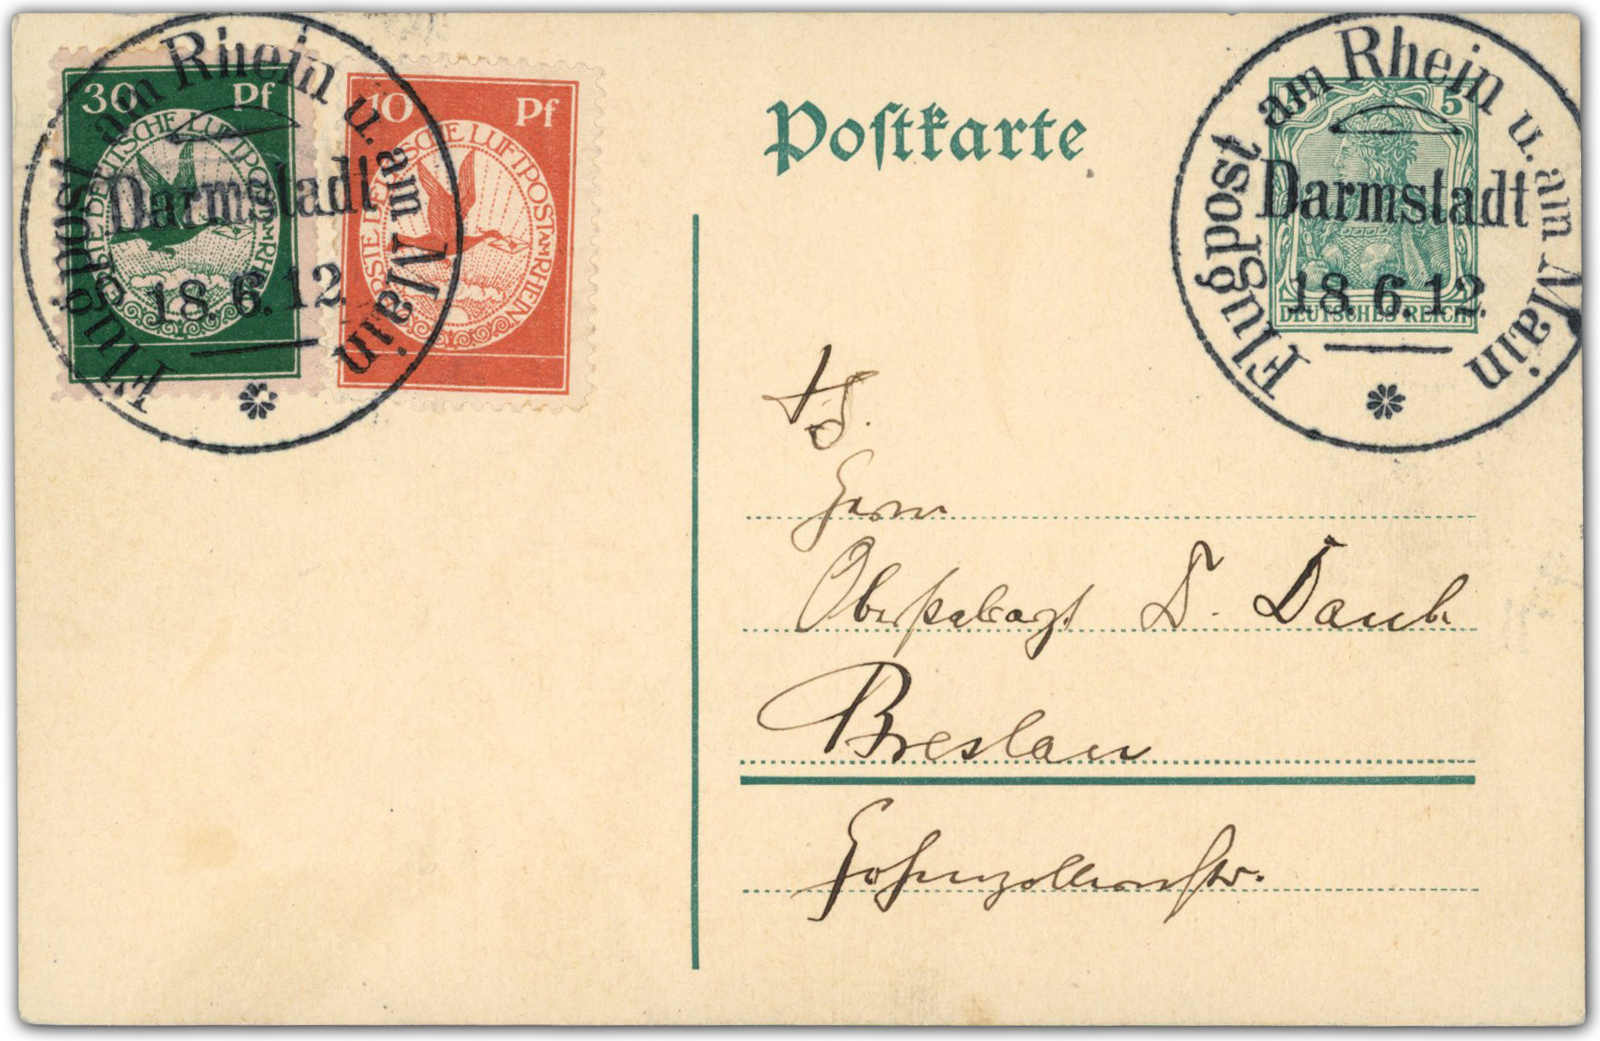 30 Pf
ERSTE DEUTSCHE LUFTPOST AM RHEIN
10 Pf
ERSTE DEUTSCHE LUFTPOST AM RHEIN
Flugpost am Rhein u. am Main
Darmstadt
18.6.12
Postkarte
5
DEUTSCHES REICH
Flugpost am Rhein u. am Main
Darmstadt
18.6.12
Herrn
D. Daub.
Breslau
Hohenzollernstr.